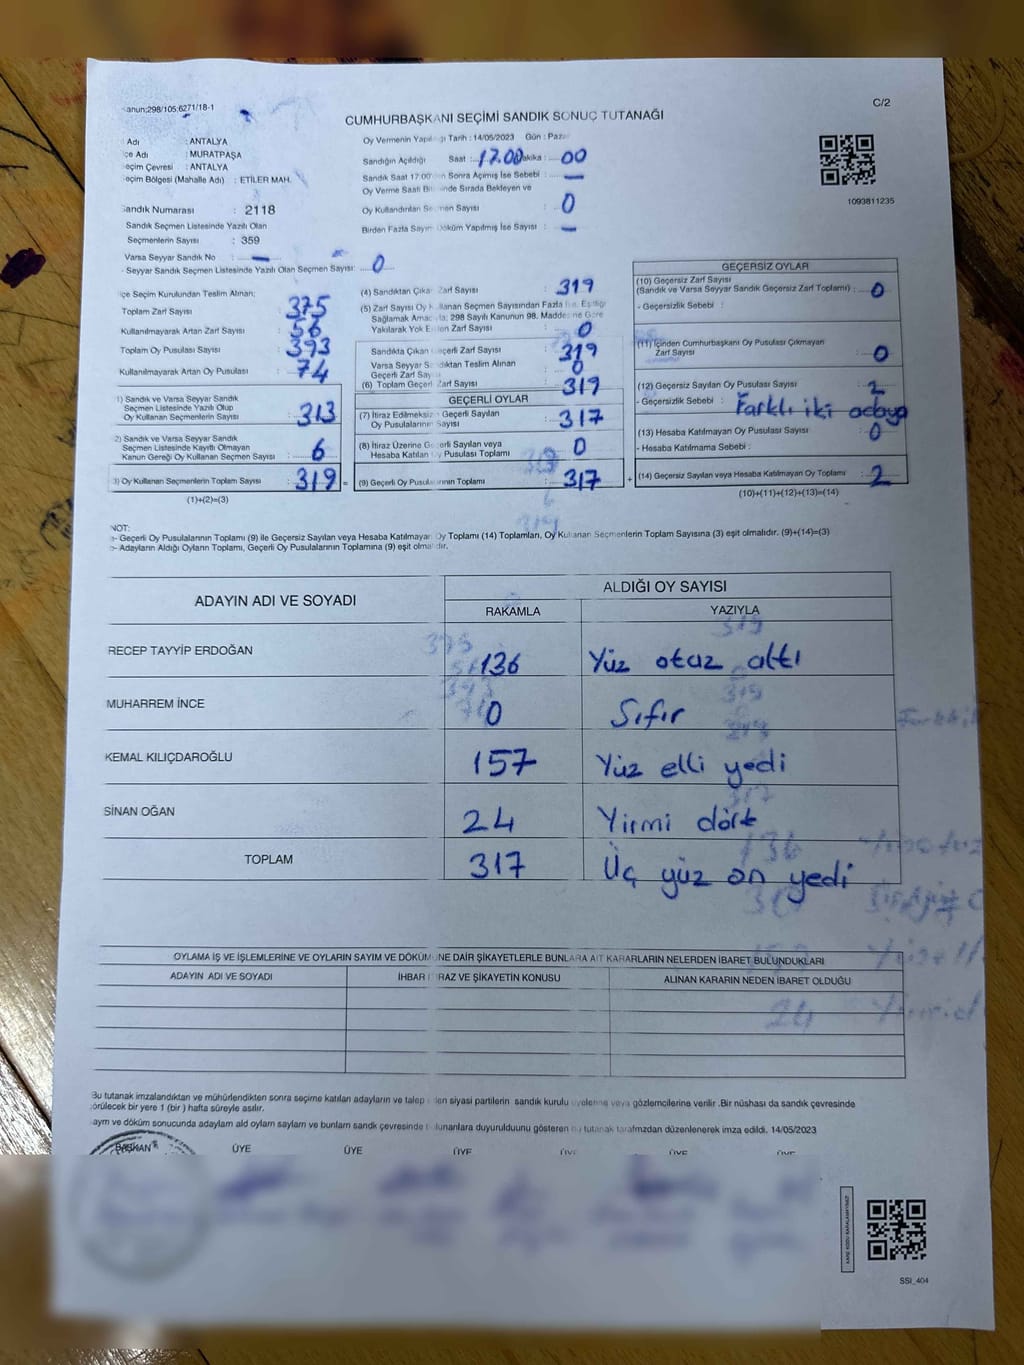 Kanun:298/105;6271/18-1
C/2
CUMHURBAŞKANI SEÇİMİ SANDIK SONUÇ TUTANAĞI
Adı : ANTALYA
İlçe Adı : MURATPAŞA
Seçim Çevresi : ANTALYA
Seçim Bölgesi (Mahalle Adı) : ETİLER MAH.
Sandık Numarası : 2118
Sandık Seçmen Listesinde Yazılı Olan
Seçmenlerin Sayısı : 359
Varsa Seyyar Sandık No : —
- Seyyar Sandık Seçmen Listesinde Yazılı Olan Seçmen Sayısı: 0
Oy Vermenin Yapıldığı Tarih : 14/05/2023 Gün : Pazar
Sandığın Açıldığı Saat : 17.00 Dakika : 00
Sandık Saat 17:00'den Sonra Açılmış İse Sebebi : —
Oy Verme Saati Bitiminde Sırada Bekleyen ve
Oy Kullandırılan Seçmen Sayısı : 0
Birden Fazla Sayım Döküm Yapılmış İse Sayısı : —
1093811235
İlçe Seçim Kurulundan Teslim Alınan;
Toplam Zarf Sayısı : 375
Kullanılmayarak Artan Zarf Sayısı : 56
Toplam Oy Pusulası Sayısı : 393
Kullanılmayarak Artan Oy Pusulası : 74
1) Sandık ve Varsa Seyyar Sandık
Seçmen Listesinde Yazılı Olup
Oy Kullanan Seçmenlerin Sayısı : 313
2) Sandık ve Varsa Seyyar Sandık
Seçmen Listesinde Kayıtlı Olmayan
Kanun Gereği Oy Kullanan Seçmen Sayısı : 6
3) Oy Kullanan Seçmenlerin Toplam Sayısı : 319 =
(1)+(2)=(3)
(4) Sandıktan Çıkan Zarf Sayısı : 319
(5) Zarf Sayısı Oy Kullanan Seçmen Sayısından Fazla İse, Eşitliği
Sağlamak Amacıyla; 298 Sayılı Kanunun 98. Maddesine Göre
Yakılarak Yok Edilen Zarf Sayısı : 0
Sandıkta Çıkan Geçerli Zarf Sayısı : 319
Varsa Seyyar Sandıktan Teslim Alınan
Geçerli Zarf Sayısı : 0
(6) Toplam Geçerli Zarf Sayısı : 319
GEÇERLİ OYLAR
(7) İtiraz Edilmeksizin Geçerli Sayılan
Oy Pusulalarının Sayısı : 317
(8) İtiraz Üzerine Geçerli Sayılan veya
Hesaba Katılan Oy Pusulası Toplamı : 0
(9) Geçerli Oy Pusulalarının Toplamı : 317 +
GEÇERSİZ OYLAR
(10) Geçersiz Zarf Sayısı
(Sandık ve Varsa Seyyar Sandık Geçersiz Zarf Toplamı) : 0
- Geçersizlik Sebebi :
(11) İçinden Cumhurbaşkanı Oy Pusulası Çıkmayan
Zarf Sayısı : 0
(12) Geçersiz Sayılan Oy Pusulası Sayısı : 2
- Geçersizlik Sebebi : Farklı iki adaya
(13) Hesaba Katılmayan Oy Pusulası Sayısı : 0
- Hesaba Katılmama Sebebi :
(14) Geçersiz Sayılan veya Hesaba Katılmayan Oy Toplamı : 2
(10)+(11)+(12)+(13)=(14)
NOT:
- Geçerli Oy Pusulalarının Toplamı (9) ile Geçersiz Sayılan veya Hesaba Katılmayan Oy Toplamı (14) Toplamları, Oy Kullanan Seçmenlerin Toplam Sayısına (3) eşit olmalıdır. (9)+(14)=(3)
- Adayların Aldığı Oyların Toplamı, Geçerli Oy Pusulalarının Toplamına (9) eşit olmalıdır.
ADAYIN ADI VE SOYADI
ALDIĞI OY SAYISI
RAKAMLA YAZIYLA
RECEP TAYYİP ERDOĞAN 136 Yüz otuz altı
MUHARREM İNCE 0 Sıfır
KEMAL KILIÇDAROĞLU 157 Yüz elli yedi
SİNAN OĞAN 24 Yirmi dört
TOPLAM 317 Üç yüz on yedi
OYLAMA İŞ VE İŞLEMLERİNE VE OYLARIN SAYIM VE DÖKÜMÜNE DAİR ŞİKAYETLERLE BUNLARA AİT KARARLARIN NELERDEN İBARET BULUNDUKLARI
ADAYIN ADI VE SOYADI İHBAR İTİRAZ VE ŞİKAYETİN KONUSU ALINAN KARARIN NEDEN İBARET OLDUĞU
Bu tutanak imzalandıktan ve mühürlendikten sonra seçime katılan adayların ve talep eden siyasi partilerin sandık kurulu üyelerine veya gözlemcilerine verilir .Bir nüshası da sandık çevresinde
görülecek bir yere 1 (bir ) hafta süreyle asılır.
Sayım ve döküm sonucunda adayların aldı oyların sayları ve bunların sandık çevresinde bulunanlara duyurulduunu gösteren bu tutanak tarafmzdan düzenlenerek imza edildi. 14/05/2023
BAŞKAN ÜYE ÜYE ÜYE ÜYE ÜYE ÜYE
KARE KODU KARALAMAYINIZ!
SSI_404